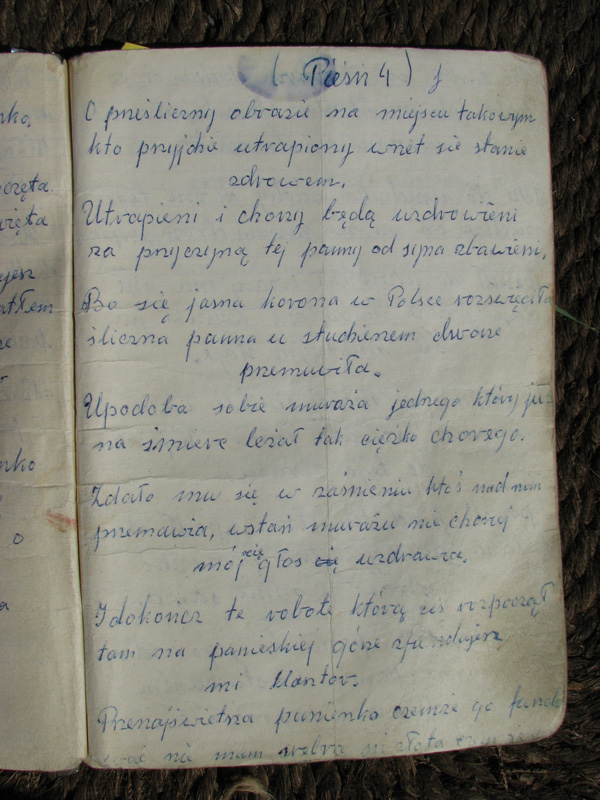 nką
częta
więta
ujesz
atłem
nko
o
a
( Pieśń 4 )
O prześliczny obrazie na miejscu takowym
kto przyjdzie utrapiony wnet sie stanie
zdrowem.
Utrapieni i chorzy będą uzdrowieni
za przyczyną tej panny od syna zbawieni,
Bo się jasna korona w Polsce rozświęciła
śliczna panna w studzienem dworze
przemuwiła.
Upodoba sobie muraża jednego który już
na śmierć leżał tak ciężko chorego.
Zdało mu się w zaśnieniu ktoś nad nim
przemawia, wstań murażu nie choruj
mój cię głos uzdrawia.
I dokończ te robote którą żeś rozpoczął
tam na panieskiej górze zfundujesz
mi klasztor.
Przenajświetrza panienko czemże go fundo
wać nie mam srebra ni złota